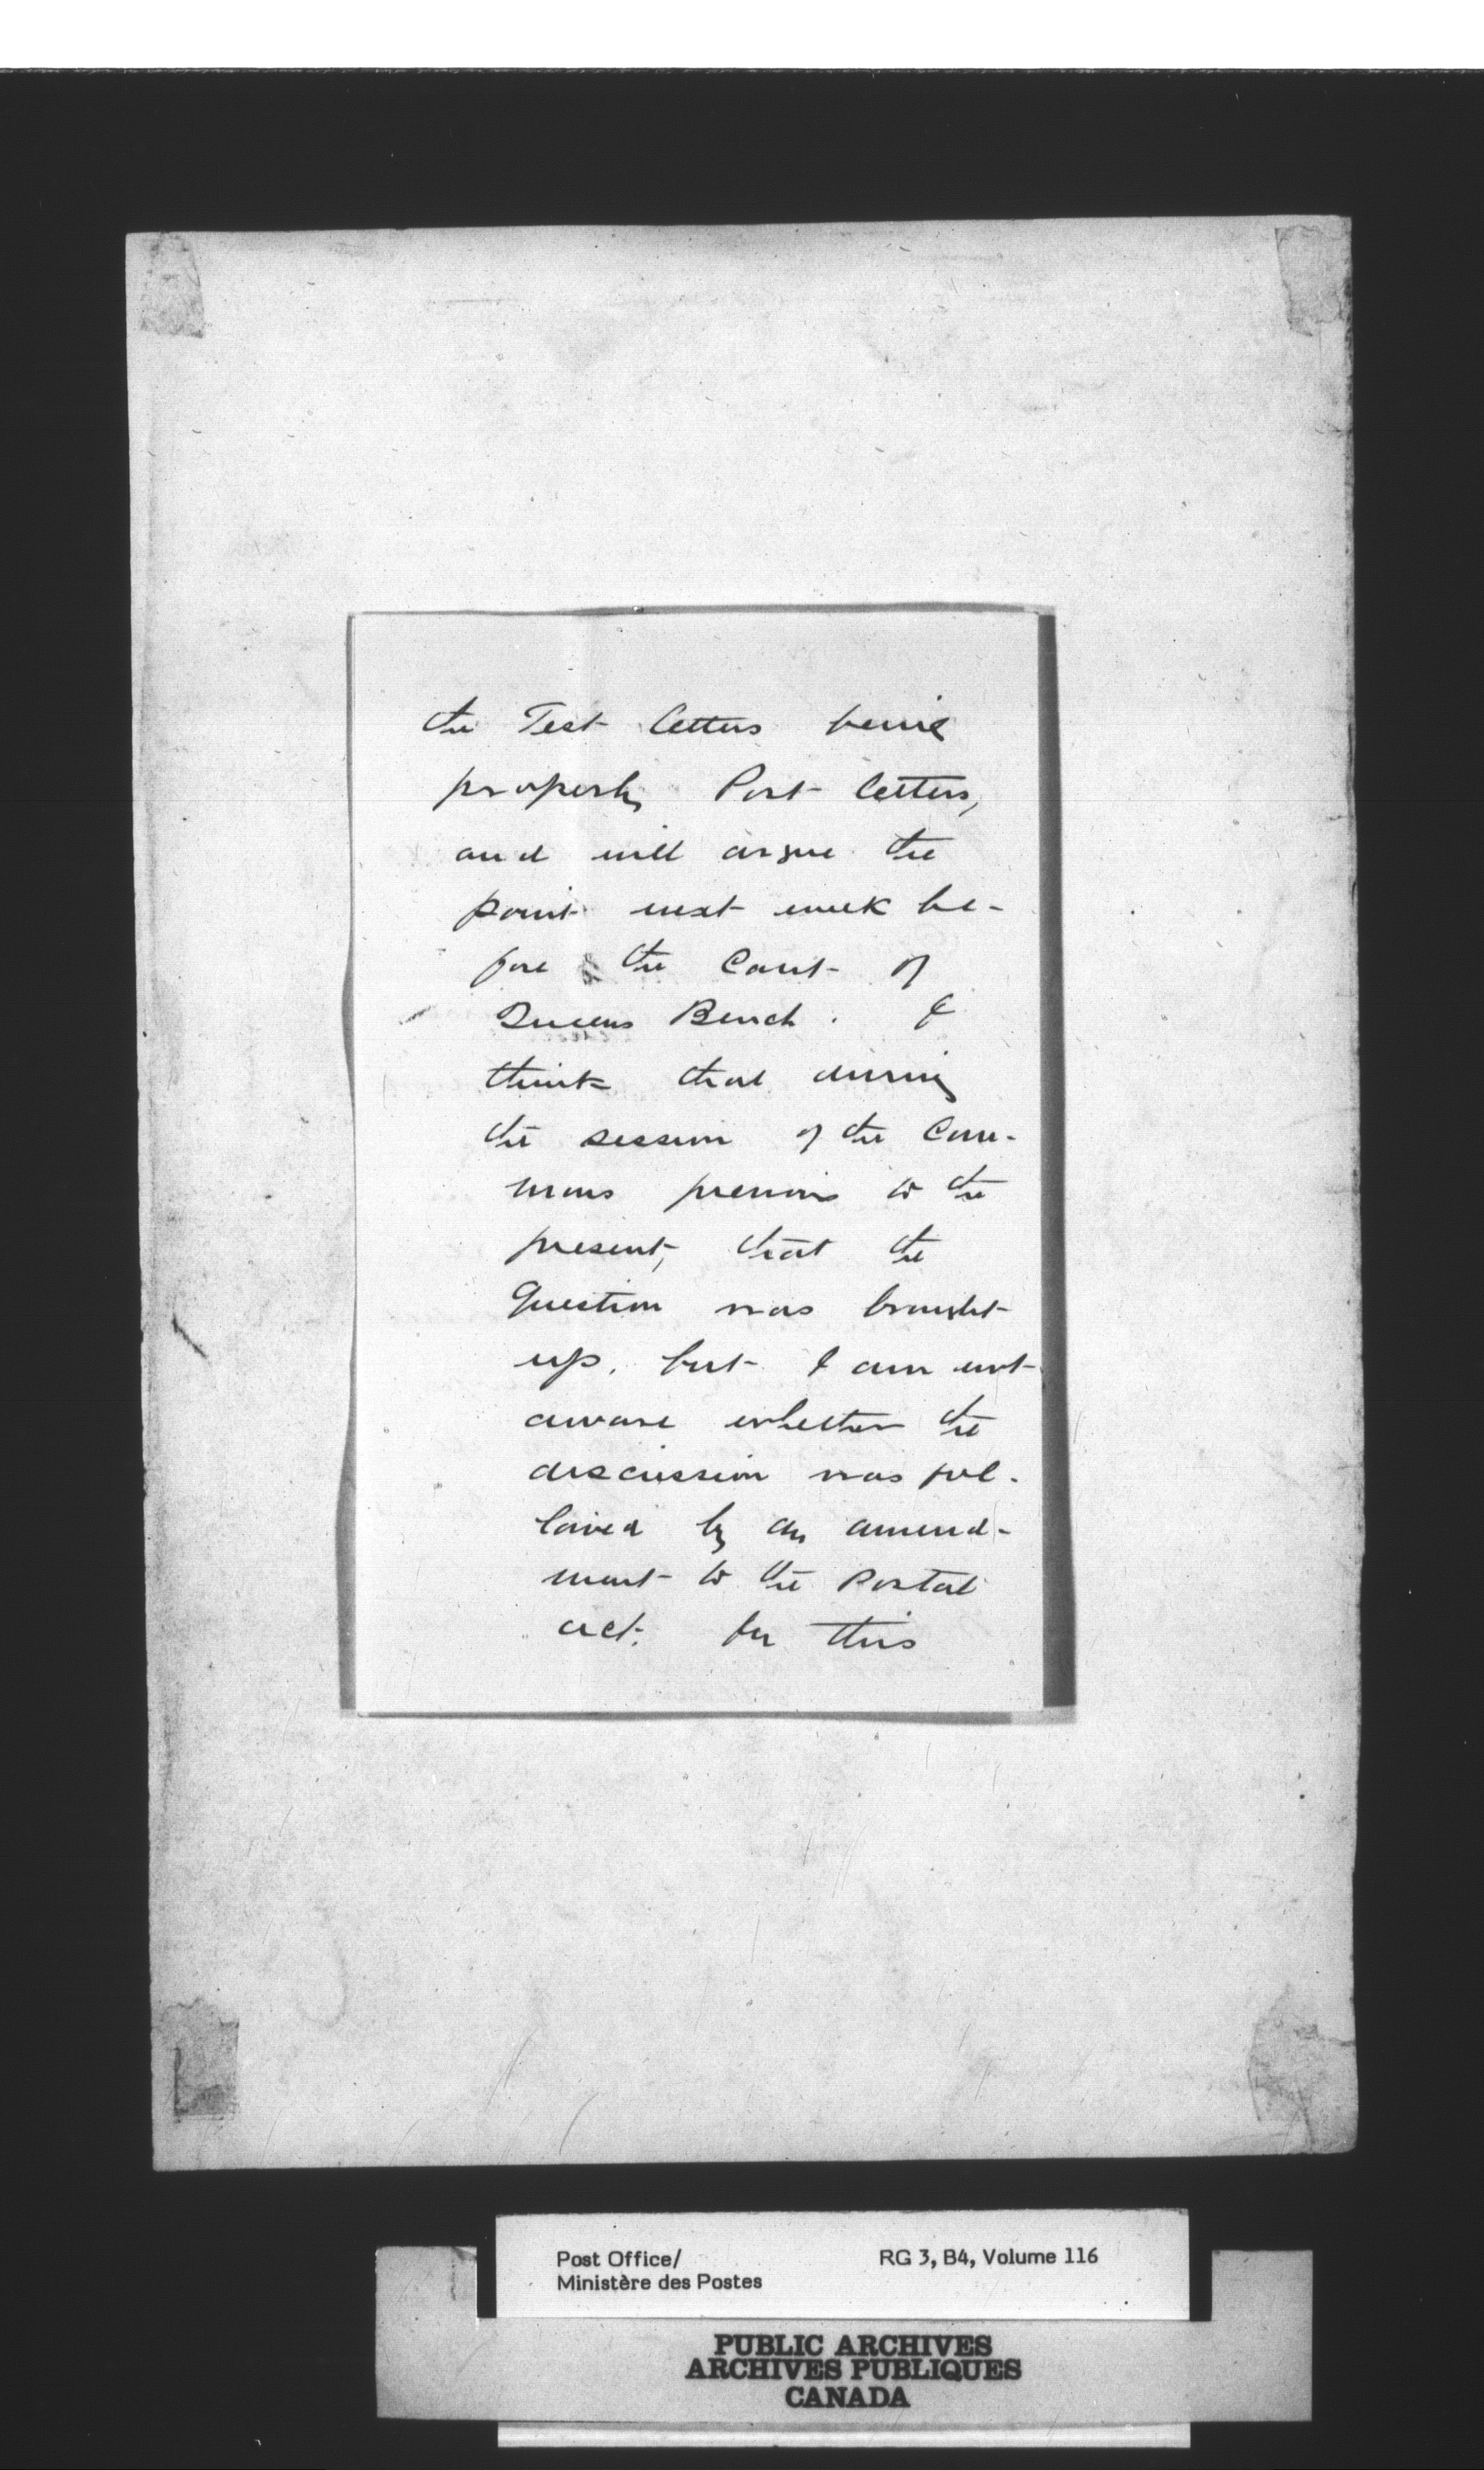 the Test letters being
properly Post letters,
and will argue the
point next week be-
fore the Court of
Queens Bench. I
think that during
the session of the Com-
mons previous to the
present, that the
Question was brought
up, but I am not
aware whether the
discussion was fol-
lowed by an amend-
ment to the Postal
act. In this
Post Office/
Ministère des Postes
RG 3, B4, Volume 116
PUBLIC ARCHIVES
ARCHIVES PUBLIQUES
CANADA